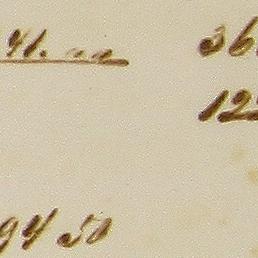 41. 00 36
122
94 50